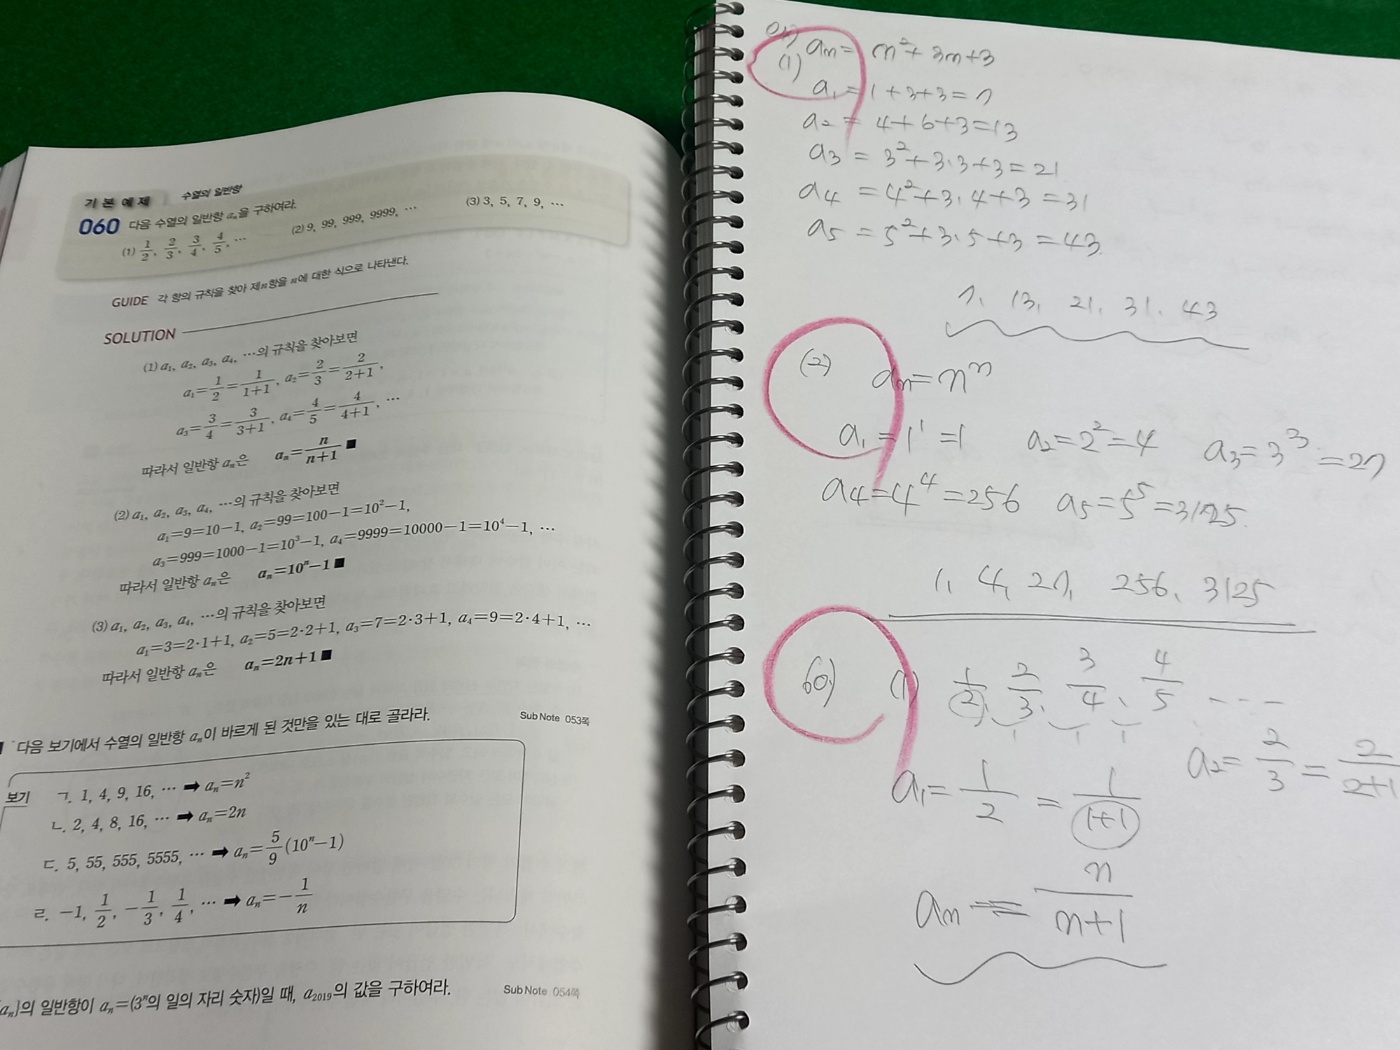 기본예제 수열의 일반항
060 다음 수열의 일반항 aₙ을 구하여라.
(1) 1/2, 2/3, 3/4, 4/5, ⋯ (2) 9, 99, 999, 9999, ⋯ (3) 3, 5, 7, 9, ⋯
GUIDE 각 항의 규칙을 찾아 제n항을 n에 대한 식으로 나타낸다.
SOLUTION
(1) a₁, a₂, a₃, a₄, ⋯의 규칙을 찾아보면
a₁=1/2=1/(1+1), a₂=2/3=2/(2+1),
a₃=3/4=3/(3+1), a₄=4/5=4/(4+1), ⋯
따라서 일반항 aₙ은 aₙ=n/(n+1) ■
(2) a₁, a₂, a₃, a₄, ⋯의 규칙을 찾아보면
a₁=9=10-1, a₂=99=100-1=10²-1,
a₃=999=1000-1=10³-1, a₄=9999=10000-1=10⁴-1, ⋯
따라서 일반항 aₙ은 aₙ=10ⁿ-1 ■
(3) a₁, a₂, a₃, a₄, ⋯의 규칙을 찾아보면
a₁=3=2·1+1, a₂=5=2·2+1, a₃=7=2·3+1, a₄=9=2·4+1, ⋯
따라서 일반항 aₙ은 aₙ=2n+1 ■
Sub Note 053쪽
다음 보기에서 수열의 일반항 aₙ이 바르게 된 것만을 있는 대로 골라라.
보기 ㄱ. 1, 4, 9, 16, ⋯ ➡ aₙ=n²
ㄴ. 2, 4, 8, 16, ⋯ ➡ aₙ=2n
ㄷ. 5, 55, 555, 5555, ⋯ ➡ aₙ=5/9(10ⁿ-1)
ㄹ. -1, 1/2, -1/3, 1/4, ⋯ ➡ aₙ=-1/n
Sub Note 054쪽
{aₙ}의 일반항이 aₙ=(3ⁿ의 일의 자리 숫자)일 때, a₂₀₁₉의 값을 구하여라.
(1) aₙ= n²+3n+3
a₁=1+3+3=7
a₂= 4+6+3=13
a₃ = 3²+3·3+3=21
a₄ =4²+3·4+3=31
a₅ =5²+3·5+3=43
7, 13, 21, 31, 43
(2) aₙ=nⁿ
a₁=1¹=1 a₂=2²=4 a₃=3³=27
a₄=4⁴=256 a₅=5⁵=3125
1, 4, 27, 256, 3125
60) (1) 1/2, 2/3, 3/4, 4/5 ---
1 1 1
a₁=1/2=1/(1+1) a₂=2/3=2/(2+1)
aₙ=n/(n+1)